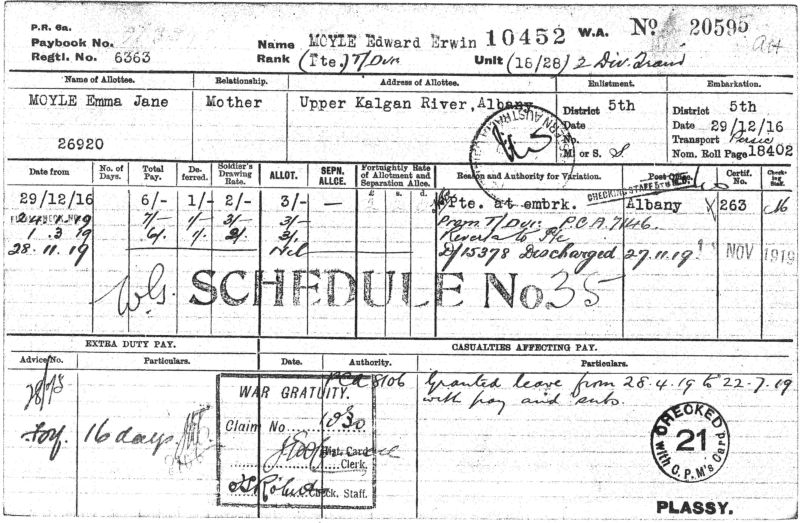 P.R. 6a.
Paybook No.
Regtl. No. 6363
Name MOYLE Edward Erwin 10452 W.A. No. 20595
Rank (Pte.) T/Dvr. Unit (16/28) 2 Div. Train
Name of Allottee. Relationship. Address of Allottee. Enlistment. Embarkation.
MOYLE Emma Jane Mother Upper Kalgan River, Albany
26920
District 5th
Date
No.
M. or S. S
District 5th
Date 29/12/16
Transport Persic
Nom. Roll Page 18402
Date from No. of Days. Total Pay. De-ferred. Soldier's Drawing Rate. ALLOT. SEPN. ALLCE. Fortnightly Rate of Allotment and Separation Allce. Reason and Authority for Variation. Post Office. Certif. No. Check-ing Staff.
£ s. d.
CHECKING STAFF 5TH M.D.
29/12/16 6/- 1/- 2/- 3/- — Pte. at embrk. Albany 263
7/- 1/- 3/- 3/- Prom. T/Dvr. P.C.A. 7146.
1. 3. 19 6/- 1/- 2/- 3/- Reverts to Pte
28. 11. 19 Nil D/15378 Discharged 27.11.19. NOV 1919
SCHEDULE No. 35
EXTRA DUTY PAY. CASUALTIES AFFECTING PAY.
Advice No. Particulars. Date. Authority. Particulars.
PCA 8106 Granted leave from 28.4.19 to 22.7.19
with pay and subs.
16 days
WAR GRATUITY.
Claim No 1030
Dist. Card
Clerk.
Check. Staff.
CHECKED
21
with C.P.M's Card
PLASSY.